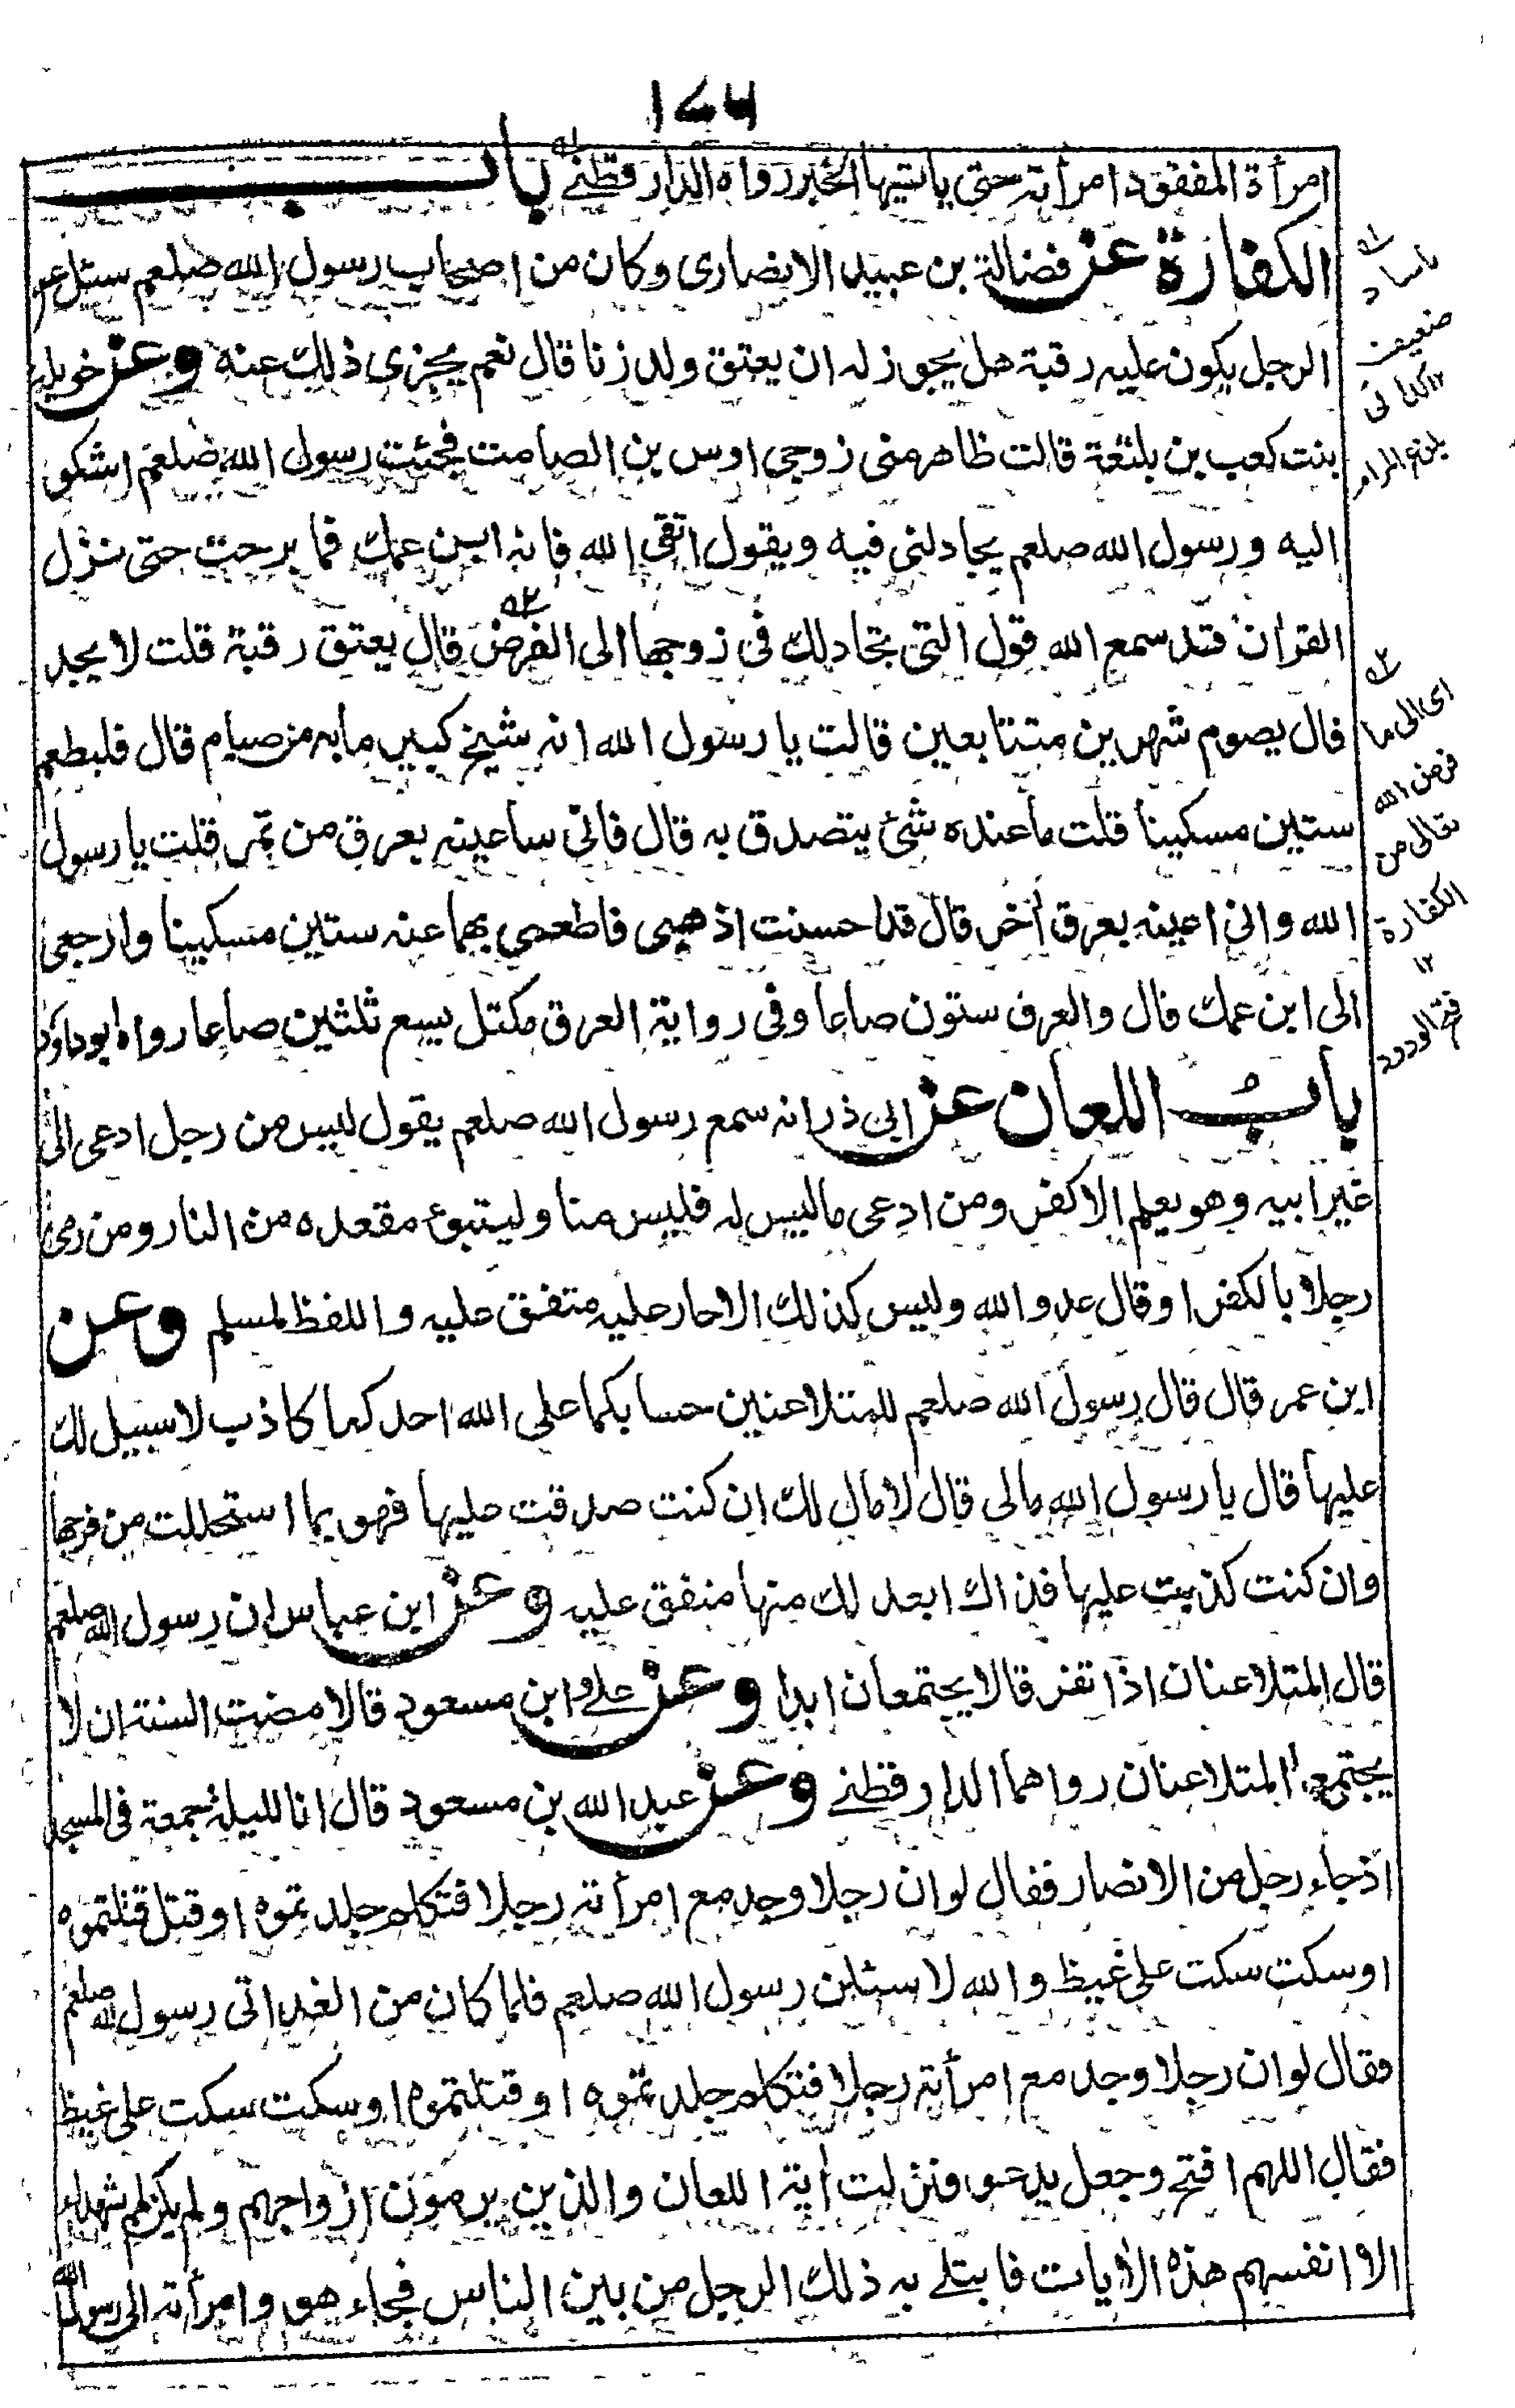 ١٧٦
امرأة المفقود امرأته حتى ياتيها الخبر رواه الدارقطنے باب
الكفارة عن فضالة بن عبيد الانصارى وكان من اصحاب رسول الله صلعم سئل عن
الرجل يكون عليه رقبة هل يجوز له ان يعتق ولد زنا قال نعم يجزى ذلك عنه وعن خويلة
بنت كعب بن بلثعة قالت ظاهر منى زوجى اوس بن الصامت فجئت رسول الله صلعم اشكو
اليه ورسول الله صلعم يجادلنى فيه ويقول اتقى الله فانه ابن عمك فما برحت حتى نزل
القران قد سمع الله قول التى تجادلك فى زوجها الى الفرض قال يعتق رقبة قلت لا يجد
قال يصوم شهرين متتابعين قالت يا رسول الله انه شيخ كبير ما به من صيام قال فليطعم
ستين مسكينا قلت ما عنده شئ يتصدق به قال فانى ساعينه بعرق من تمر قلت يا رسول
الله وانى اعينه بعرق أخر قال قد احسنت اذهبى فاطعمى بهما عنه ستين مسكينا وارجعى
الى ابن عمك قال والعرق ستون صاعا وفى رواية العرق مكتل يسع ثلثين صاعا رواه ابو داؤد
باب اللعان عن ابى ذر انه سمع رسول الله صلعم يقول ليس من رجل ادعى الى
غير ابيه وهو يعلم الا كفر ومن ادعى ما ليس له فليس منا وليتبوء مقعده من النار ومن رمى
رجلا بالكفر او قال عدو الله وليس كذلك الا حار عليه متفق عليه واللفظ لمسلم وعن
ابن عمر قال قال رسول الله صلعم للمتلاعنين حسابكما على الله احدكما كاذب لا سبيل لك
عليها قال يا رسول الله مالى قال لا مال لك ان كنت صدقت عليها فهو بما استحللت من فرجها
وان كنت كذبت عليها فذاك ابعد لك منها متفق عليه وعن ابن عباس ان رسول الله صلعم
قال المتلاعنان اذا تفرقا لا يجتمعان ابدا وعن علے وابن مسعود قالا مضت السنة ان لا
يجتمع المتلاعنان رواهما الدارقطنے وعن عبد الله بن مسعود قال انا لليلة جمعة فى المسجد
اذ جاء رجل من الانصار فقال لو ان رجلا وجد مع امرأته رجلا فتكلم جلدتموه او قتل قتلتموه
او سكت سكت على غيظ والله لاسئلن رسول الله صلعم فلما كان من الغد اتى رسول الله صلعم
فقال لو ان رجلا وجد مع امرأته رجلا فتكلم جلدتموه او قتلتموه او سكت سكت على غيظ
فقال اللهم افتح وجعل يدعو فنزلت أية اللعان والذين يرمون ازواجهم ولم يكن لهم شهداء
الا انفسهم هذه الأيات فابتلے به ذلك الرجل من بين الناس فجاء هو وامرأته الى رسول الله
١ه
باسناد
ضعيف
١٢ كذا فى
بلوغ المرام
٢ه
اى الى ما
فرض الله
تعالى من
الكفارة
١٢
فتح الودود